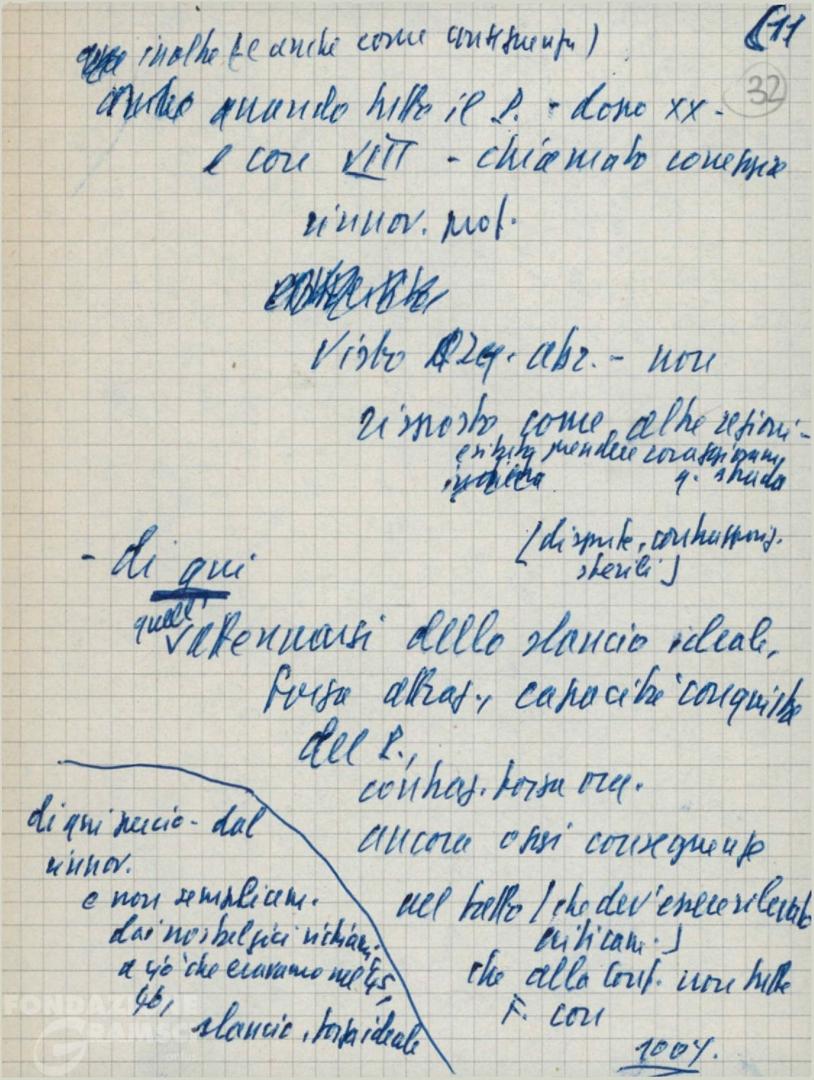 (11
32
inoltre (e anche come conseguenza)
anche quando tutto il P. - dopo XX -
e con VIII - chiamato comespre
rinnov. prof.
Visto org. abr. - non
risposto come altre regioni -
prendere coraggiosam.
q. strada
(dispute, contrappos.
sterili)
- di qui
quell'
attenuarsi dello slancio ideale,
forza attraz., capacità conquista
del P.,
contras. forza org.
ancora oggi conseguenze
nel fatto (che dev'essere rilevato
criticam.)
che alla Conf. non tutte
F. con
100%.
di qui pecio - dal
rinnov.
e non semplicem.
dai nostalgici richiami
a ciò che eravamo nel 45,
46,
slancio, forza ideale
FONDAZIONE
GRAMSCI